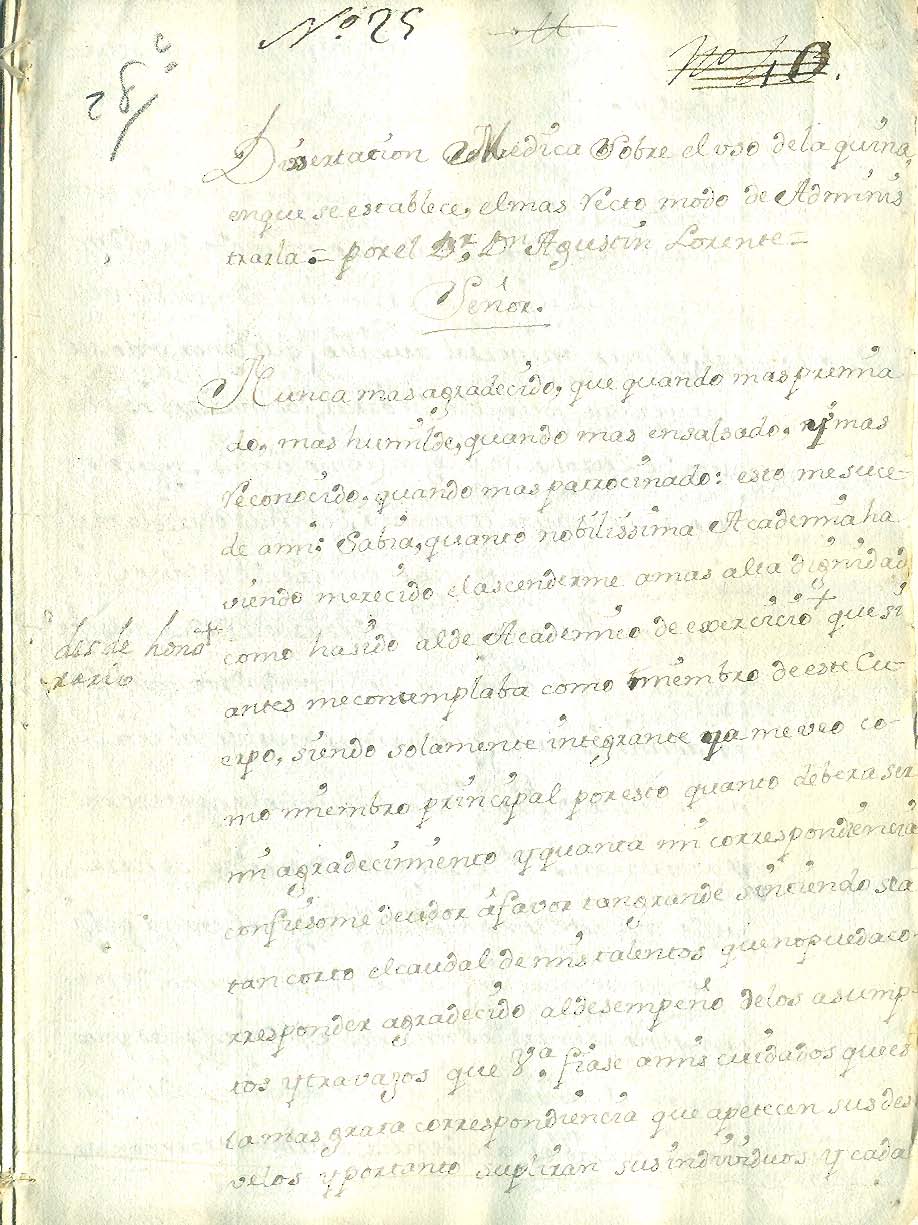 Nº 25
28
Nº 40.
Dissertacion Medica Sobre el uso de la quina,
enque se establece, elmas recto modo de Adminis
trarla = por el Dr. Dn Agustin Lorente =
Señor.
Nunca mas agradecido, que quando mas premia
do, mas humilde, quando mas ensalsado, y mas
reconocido, quando mas patrocinado: esto me suce-
de ami: Sabia, quanto nobilissima Academia ha
viendo merecido el ascenderme a mas alta dignidad
como ha sido alde Academico de exercicio + que si
+ desde hono
rario
antes mecontemplaba como miembro de este Cu-
erpo, siendo solamente integrante ya me veo co-
mo miembro principal por esto quanto debera ser
mi agradecimiento y quanta mi correspondiencia
confiesome deudor á favor tan grande sintiendo sea
tan corto el caudal de mis talentos que no pueda co-
rresponder agradecido al desempeño delos asump-
tos y travajos que Va. fiase a mis cuidados que es
la mas grata correspondiencia que apetecen sus des
velos y portanto supliran sus individuos y cada